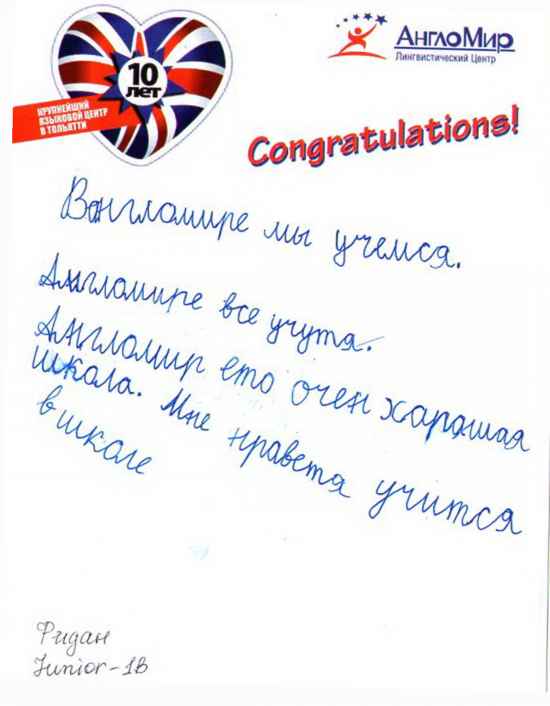 10
лет
КРУПНЕЙШИЙ
ЯЗЫКОВОЙ ЦЕНТР
В ТОЛЬЯТТИ
АнглоМир
Лингвистический Центр
Congratulations!
Вангломире мы учемся.
Англомире все учутя.
Англомир ето очен харошая
школа. Мне нраветя учится
в школе
Ридан
Junior-1B